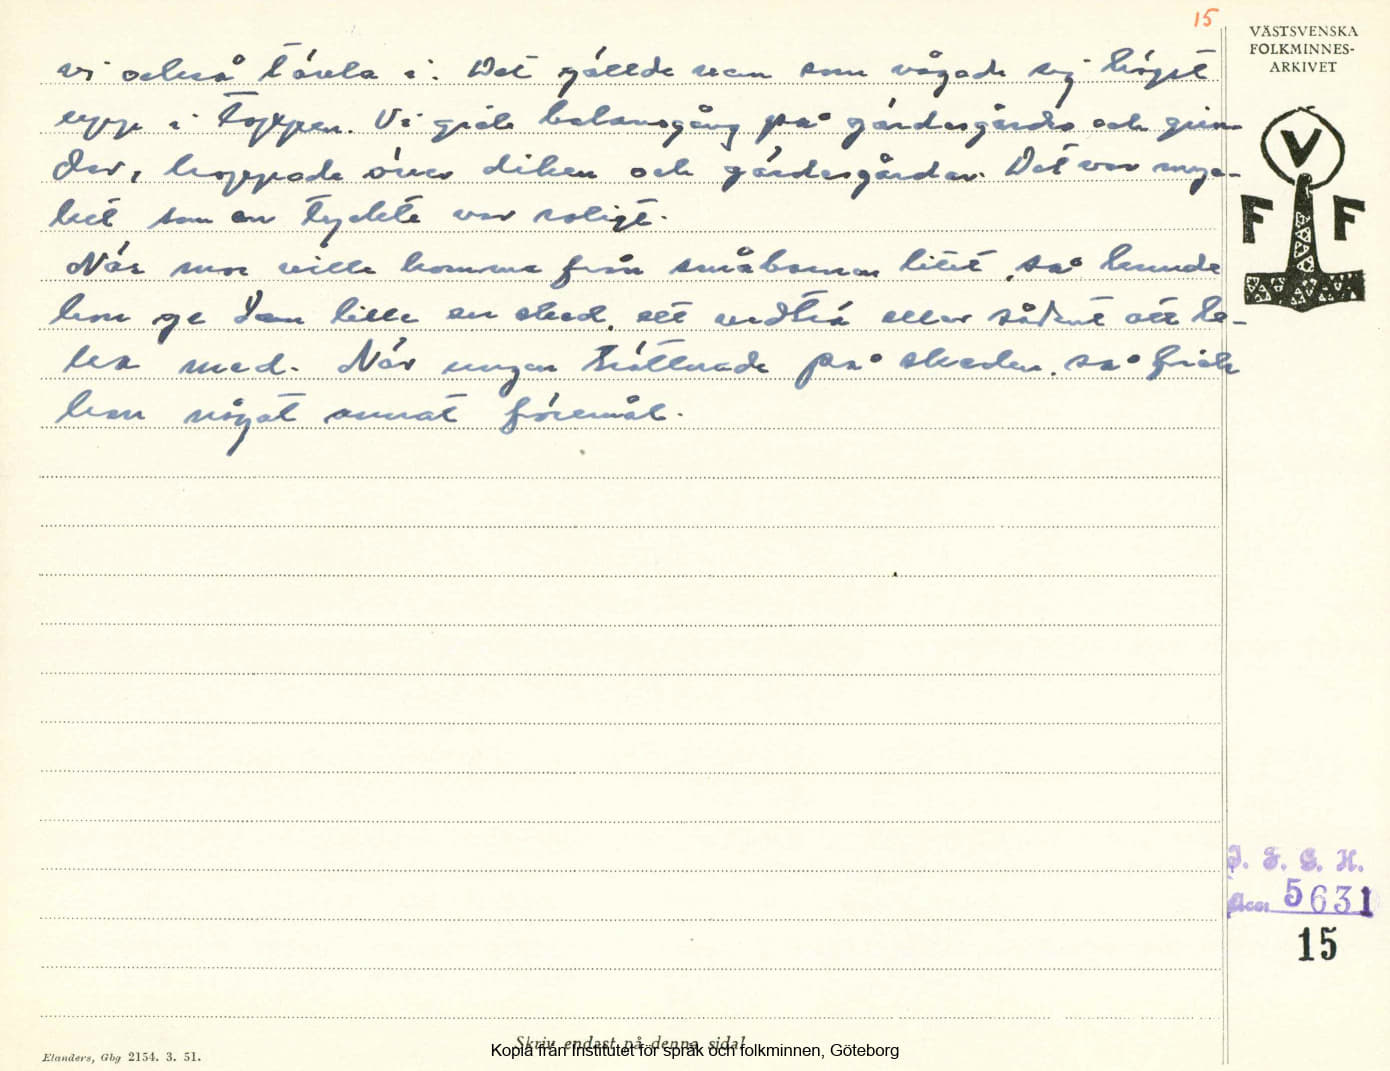 15
VÄSTSVENSKA
FOLKMINNES-
ARKIVET
vi också tävla i. Det gällde vem som vågade sig högst
upp i toppen. Vi gick balansgång på gärdesgårds och grin
dar, hoppade över diken och gärdesgårdar. Det var myc-
ket som en tyckte var roligt.
När mor ville komma från småbarnen litet, så kunde
hon ge den lille en sked, ett vedträ eller sådant att le-
ka med. När ungen tröttnade på skeden, så fick
han något annat föremål.
V
F F
I. F. G. H.
Acc. 5631
15
Skriv endast på denna sida!
Kopia från Institutet för språk och folkminnen, Göteborg
Elanders, Gbg 2154. 3. 51.